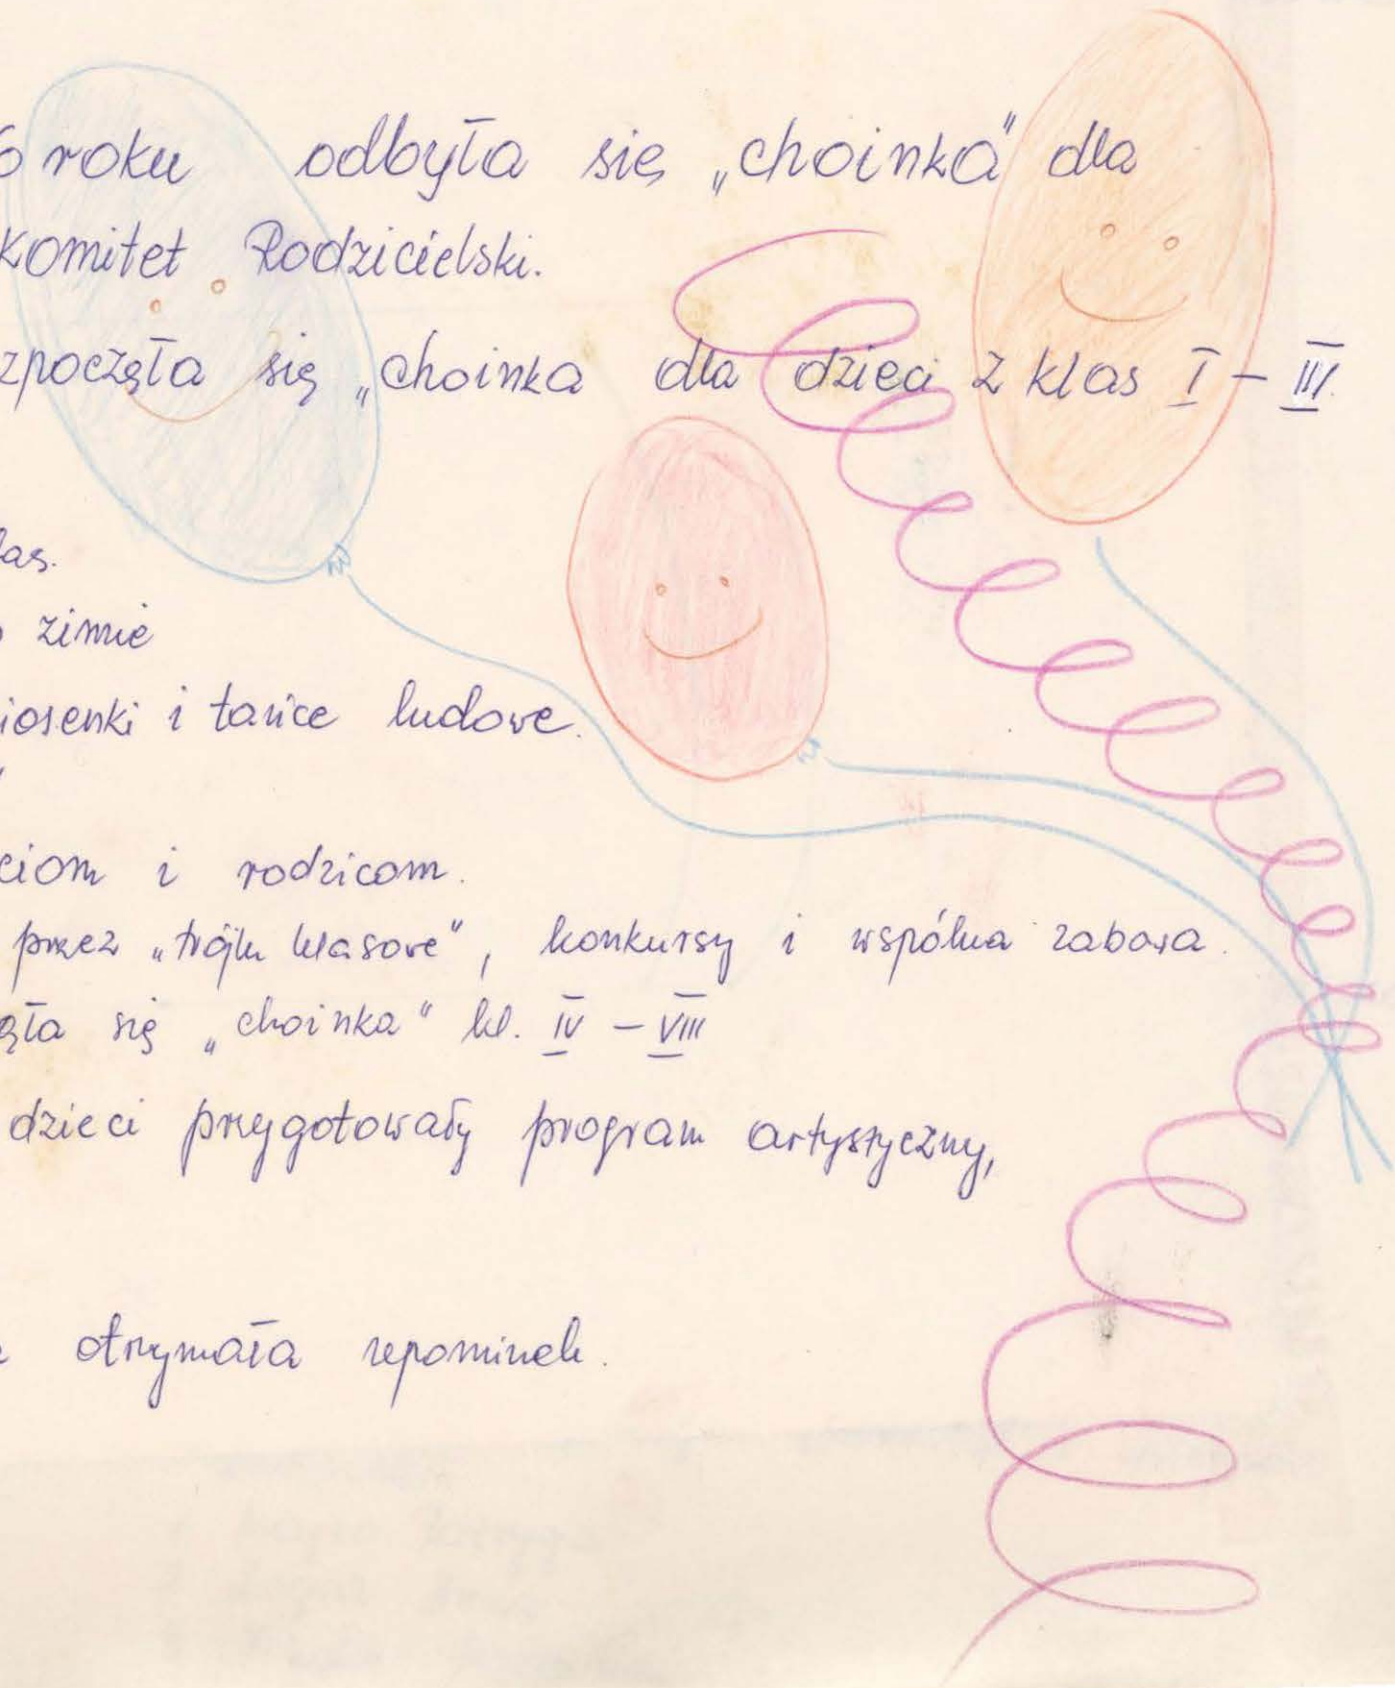 6 roku odbyła się „choinka" dla
Komitet Rodzicielski.
zpoczęła się „choinka dla dzieci z klas I – III.
las.
o zimie
iosenki i tańce ludowe.
ciom i rodzicom.
przez „trójki klasowe", konkursy i wspólna zabawa.
ęła się „choinka" kl. IV – VIII
dzieci przygotowały program artystyczny,
otrzymała upominek.